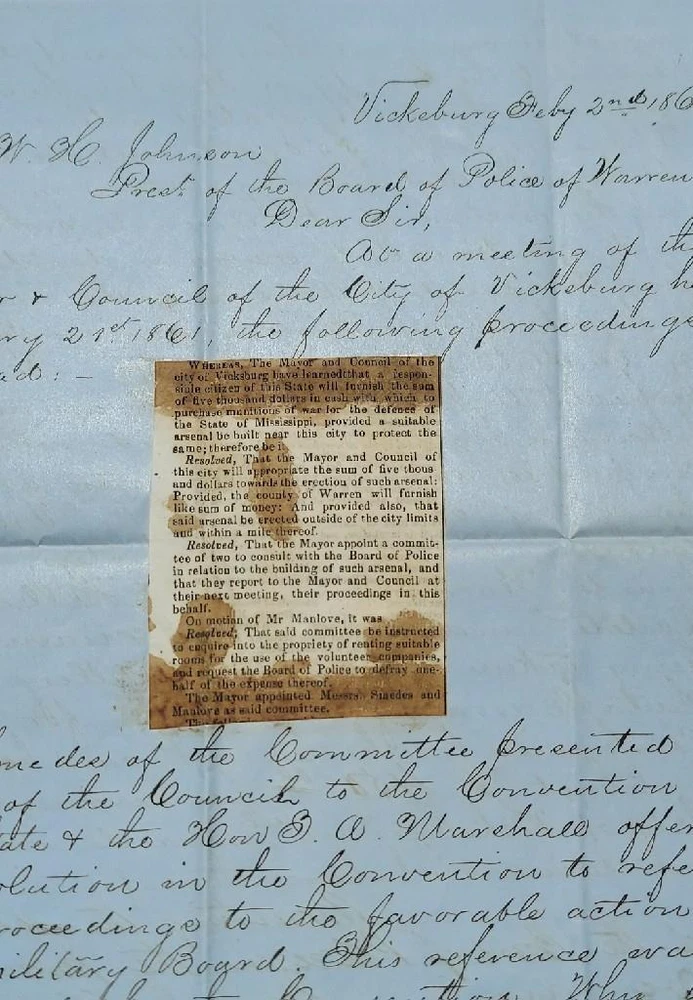 Vicksburg Feby 2nd, 186
W. H. Johnson
Prest. of the Board of Police of Warren
Dear Sir,
At a meeting of the
r & Council of the City of Vicksburg he
ry 21st 1861, the following proceedings
ad: -
WHEREAS, The Mayor and Council of the
city of Vicksburg have learned that a respon-
sible citizen of this State will furnish the sum
of five thousand dollars in cash with which to
purchase munitions of war for the defence of
the State of Mississippi, provided a suitable
arsenal be built near this city to protect the
same; therefore be i
Resolved, That the Mayor and Council of
this city will appropriate the sum of five thous
and dollars towards the erection of such arsenal:
Provided, the county of Warren will furnish
like sum of money: And provided also, that
said arsenal be erected outside of the city limits
and within a mile thereof.
Resolved, That the Mayor appoint a commit-
tee of two to consult with the Board of Police
in relation to the building of such arsenal, and
that they report to the Mayor and Council at
their next meeting, their proceedings in this
behalf.
On motion of Mr Manlove, it was
Resolved; That said committee be instructed
to enquire into the propriety of renting suitable
rooms for the use of the volunteer companies,
and request the Board of Police to defray one-
half of the expense thereof.
The Mayor appointed Messrs. Smedes and
Manlove as said committee.
me des of the Committee presented
of the Council to the Convention
ate & the Hon T. A. Marshall offer
olution in the Convention to refe
roceedings to the favorable action
military Board. This reference wa